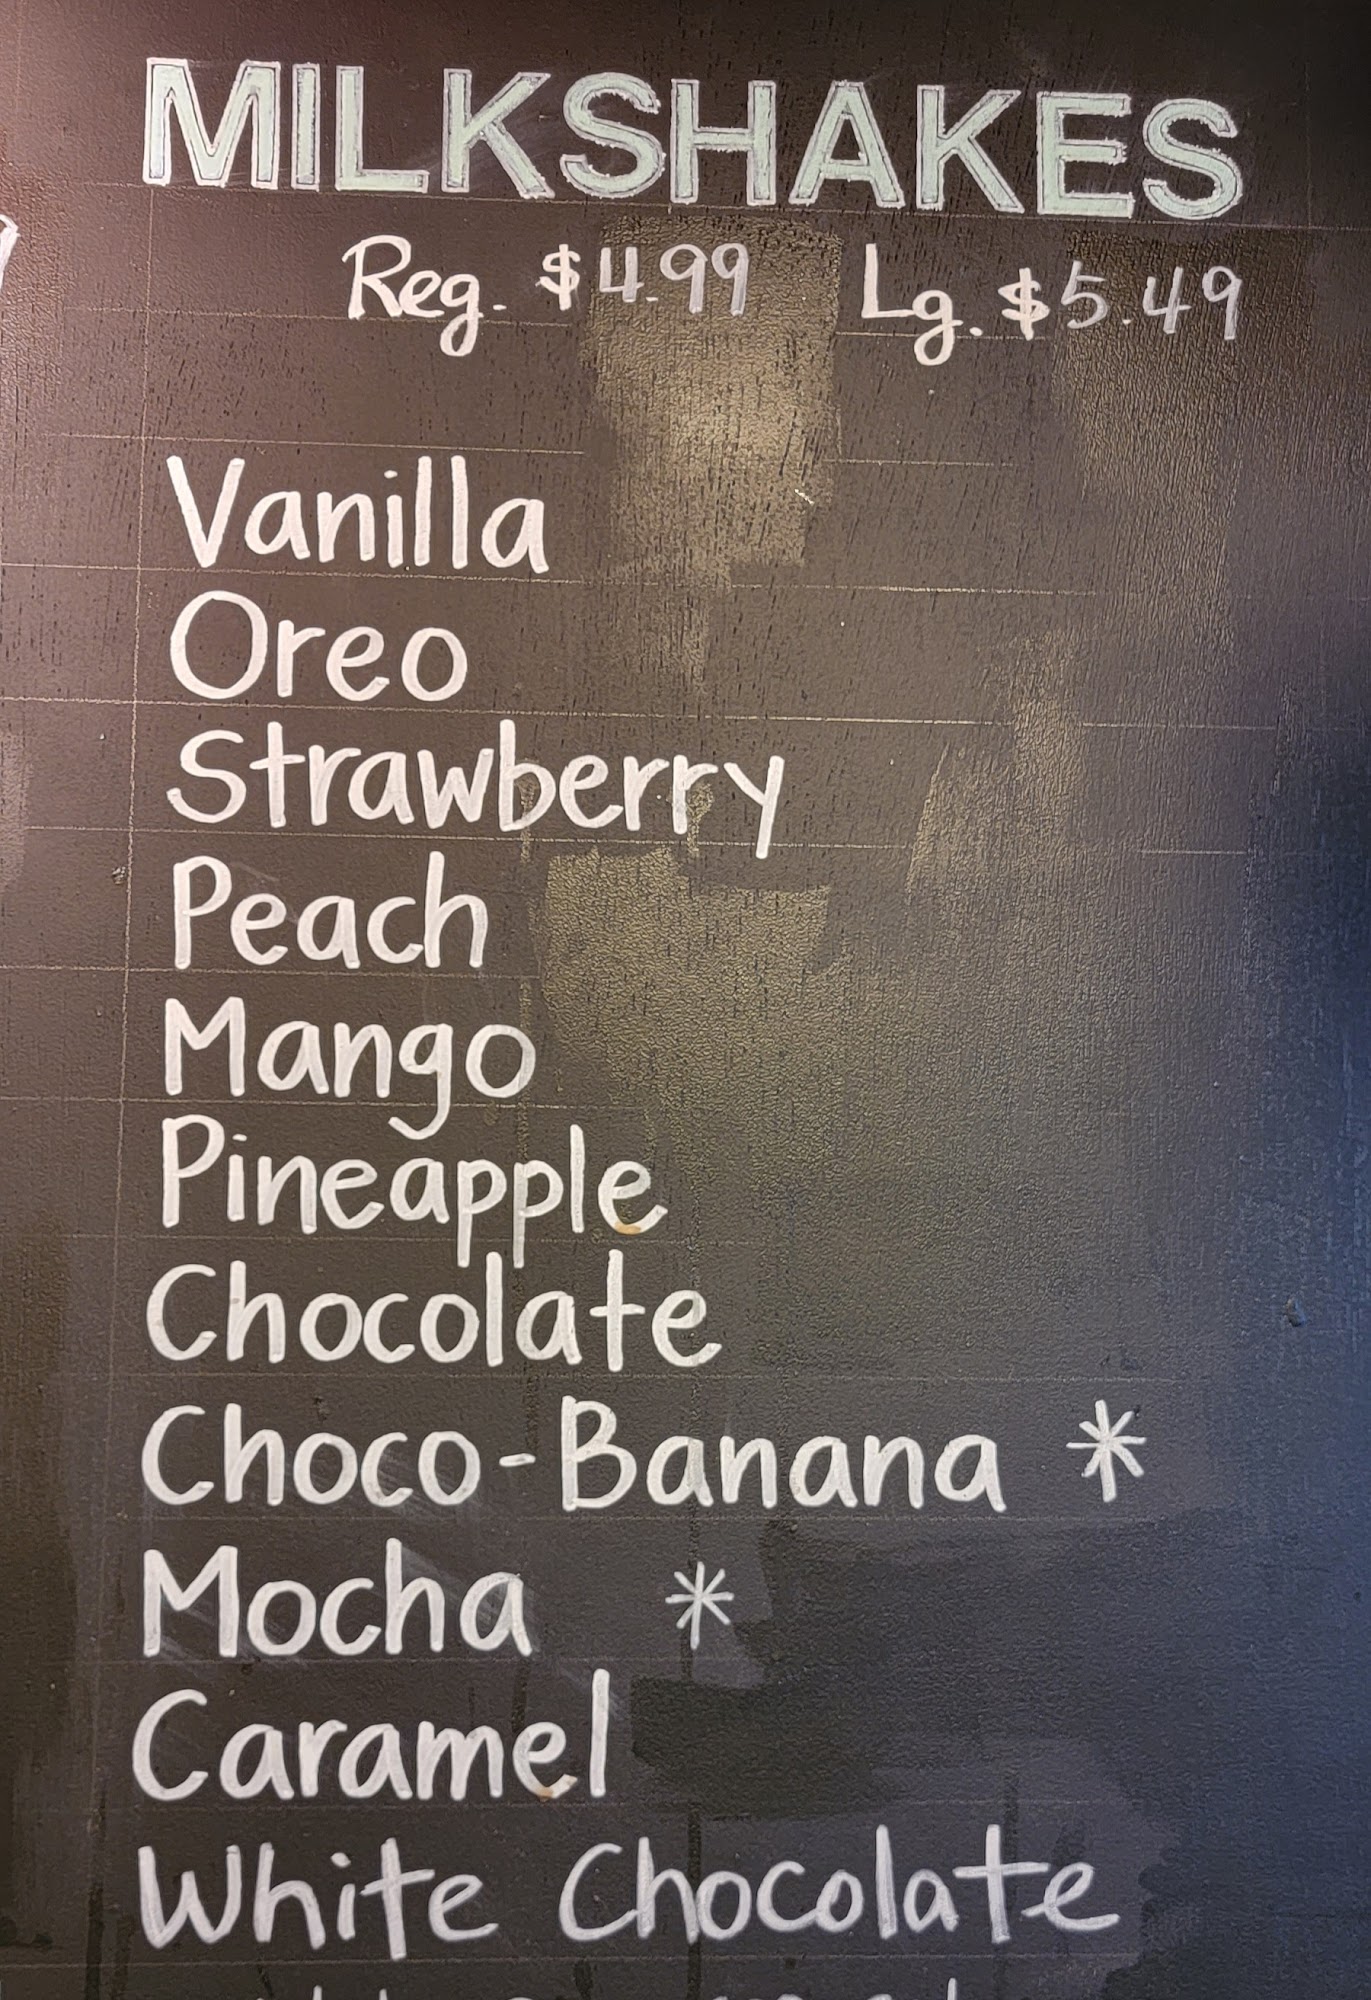 MILKSHAKES
Reg. $4.99 Lg. $5.49
Vanilla
Oreo
Strawberry
Peach
Mango
Pineapple
Chocolate
Choco-Banana *
Mocha *
Caramel
White Chocolate